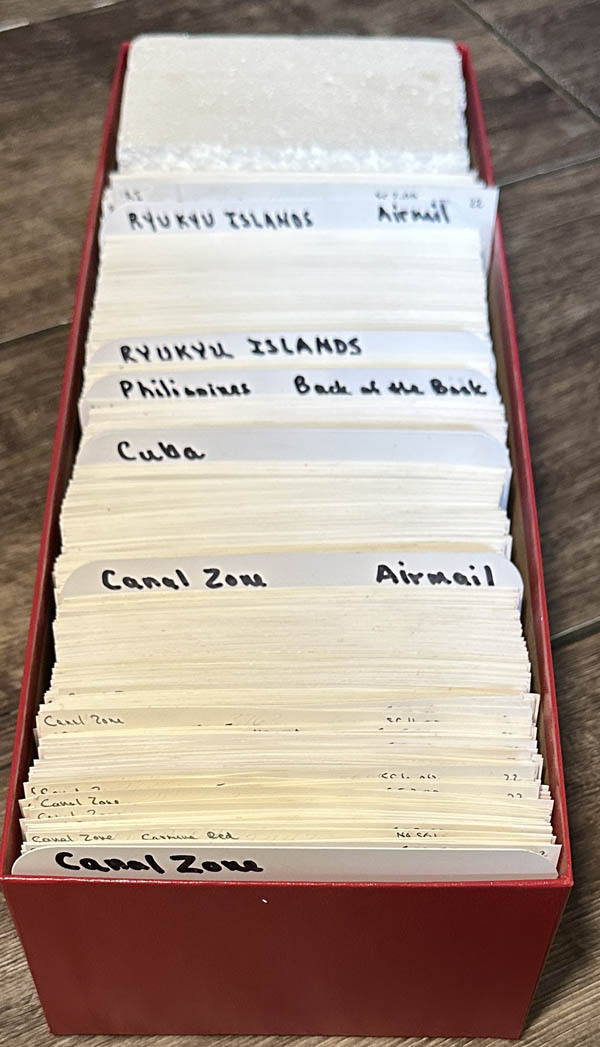 RYUKYU ISLANDS Airmail
22
RYUKYU ISLANDS
Philippines Back of the Book
Cuba
Canal Zone Airmail
Canal Zone
22
Canal Zone
Canal Zone Carmine Red No
Canal Zone